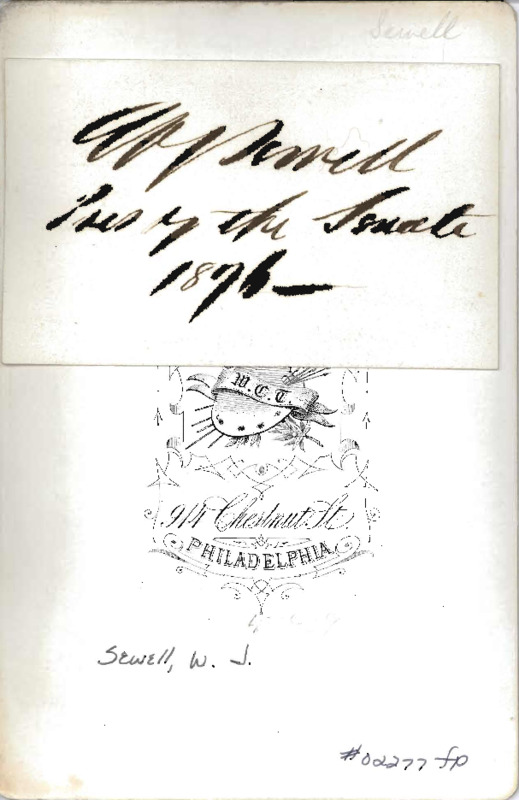 Sewell
W J Sewell
Pres of the Senate
1876
W.C.T.
914 Chestnut St.
PHILADELPHIA.
Sewell, W. J.
#02277 fp